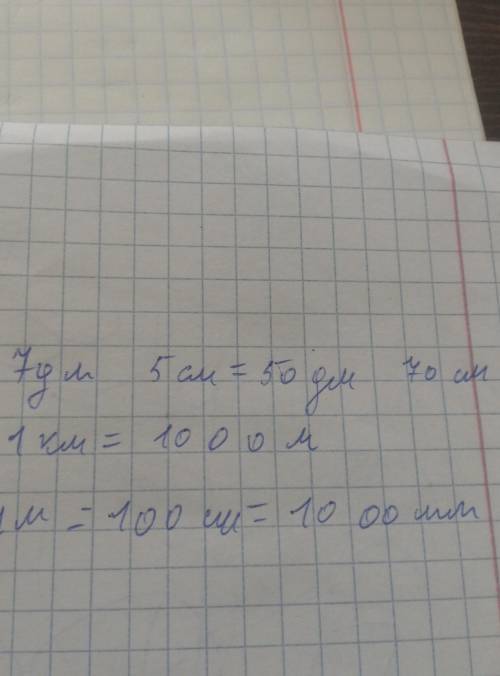 7дм 5 см = 50 дм 70 см
1 км = 1000 м
1м = 100 см = 1000 мм